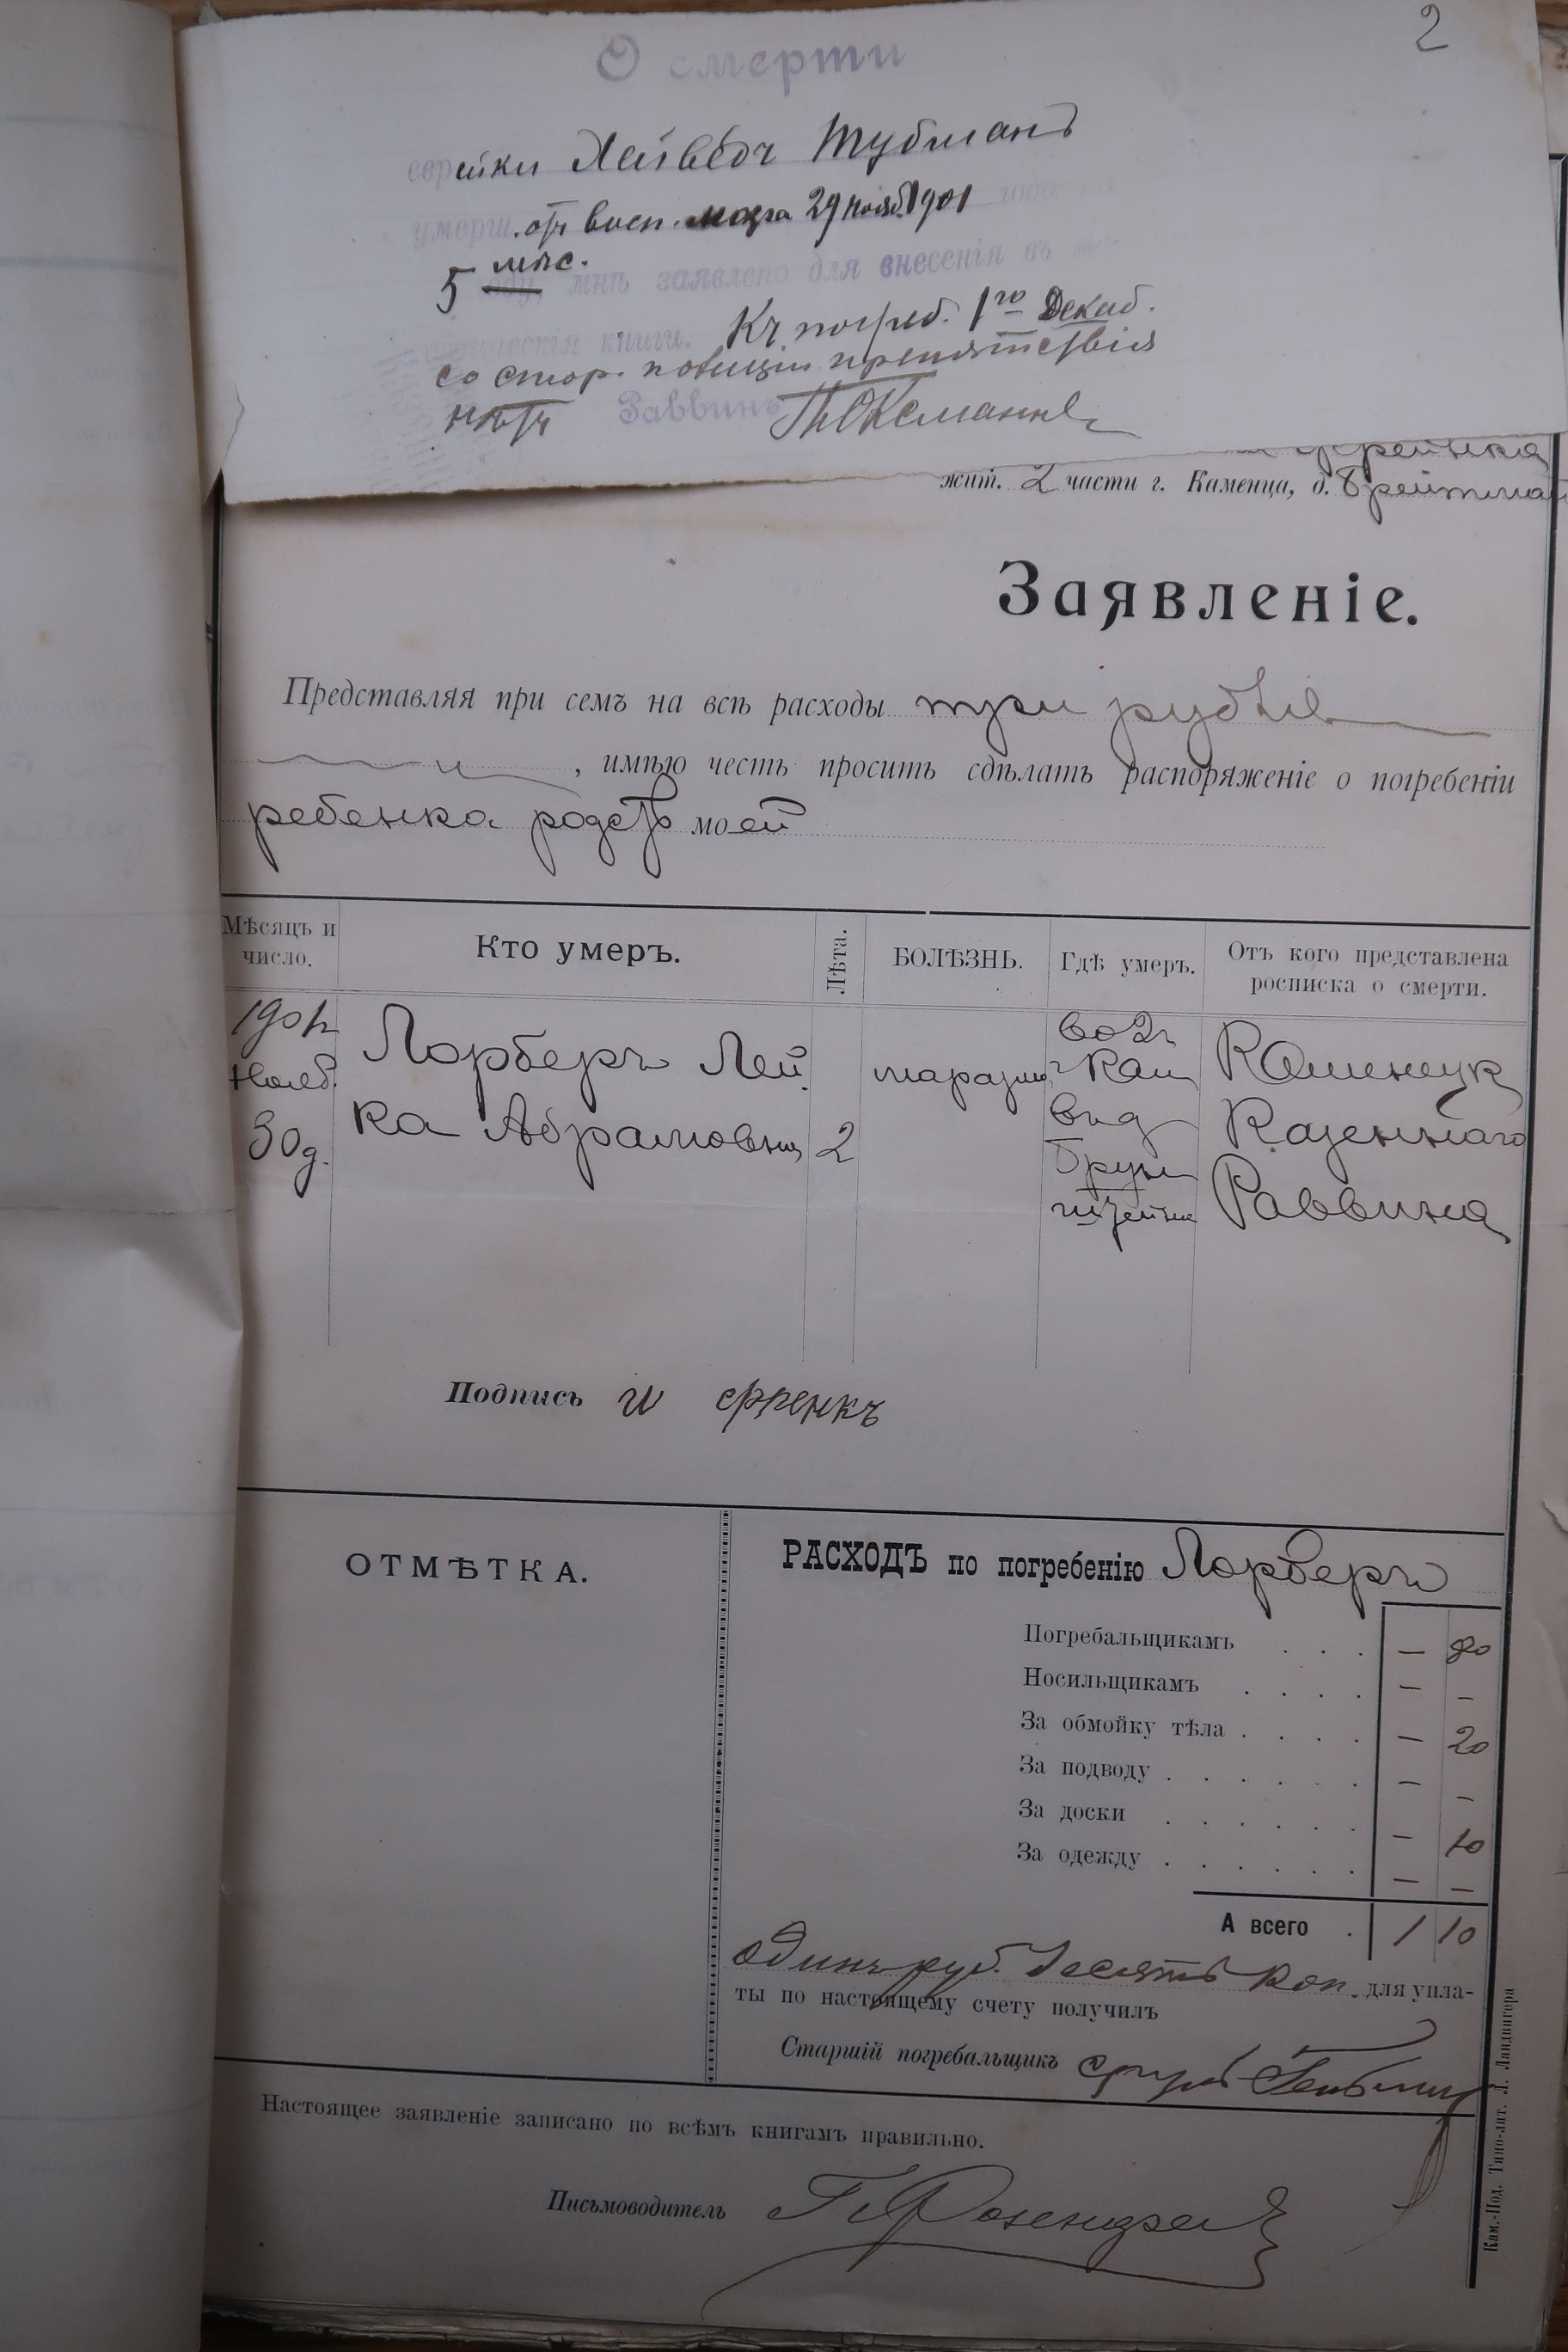 2
О смерти
еврейки Хейведъ Тубманъ
умерш. отъ восп. мозга 29 нояб. 1901 года
5 мѣс. оду, мнѣ заявлено для внесенія въ
рическія книги. Къ погреб. 1го Декаб.
со стор. полиціи препятствія
нѣтъ Раввинъ
жит. 2 части г. Каменца, д. Брейтман
Заявленіе.
Представляя при семъ на всѣ расходы три рубля
, имѣю честь просить сдѣлать распоряженіе о погребеніи
ребенка родств моей
Мѣсяцъ и число. Кто умеръ. Лѣта. БОЛѢЗНЬ. Гдѣ умеръ. Отъ кого представлена росписка о смерти.
1901 Лорберъ Лей во 2ч
Нояб. маразм г Кам Каменецк
30 д. ка Абрамовна 2 въ д Казеннаго
Брун
штейна Раввина
Подпись И Френкъ
ОТМѢТКА.
РАСХОДЪ по погребенію Лорберъ
Погребальщикамъ . . . — 80
Носильщикамъ . . . . — –
За обмойку тѣла . . . . — 20
За подводу . . . . . . — –
За доски . . . . . . — 10
За одежду . . . . . . — –
А всего . 1 10
одинъ руб. десять коп. для упла-
ты по настоящему счету получилъ
Старшій погребальщикъ
Настоящее заявленіе записано по всѣмъ книгамъ правильно.
Письмоводитель
Кам.-Под. Типо-лит. Л. Ландвигера